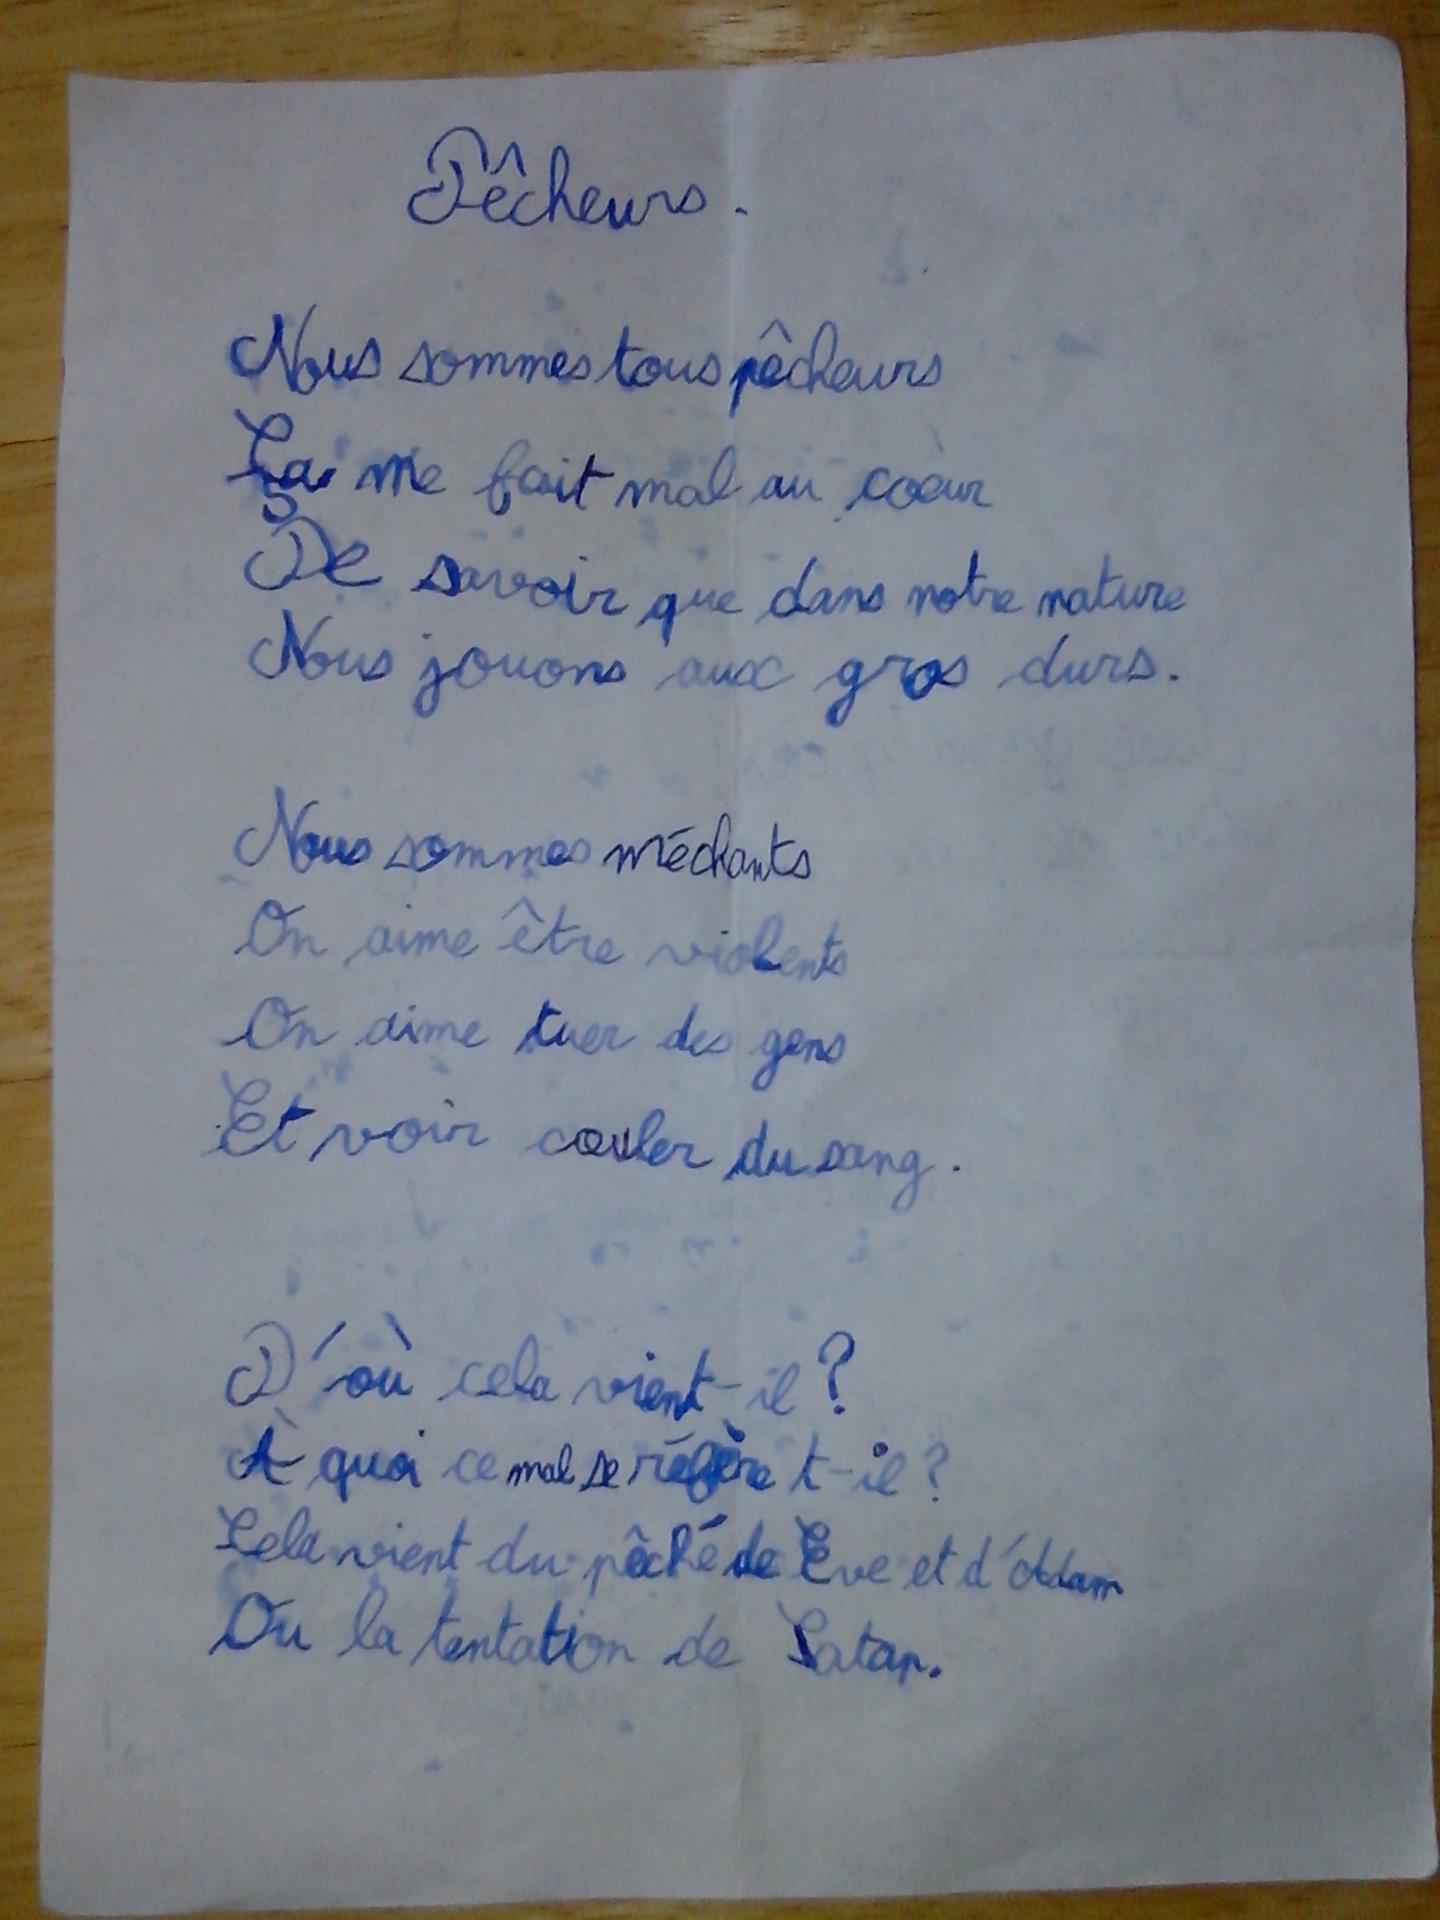 Pêcheurs.
Nous sommes tous pêcheurs
Ça me fait mal au coeur
De savoir que dans notre nature
Nous jouons aux gros durs.
Nous sommes méchants
On aime être violents
On aime tuer des gens
Et voir couler du sang.
D'où cela vient-il ?
À quoi ce mal se réfère t-il ?
Cela vient du pêché de Eve et d'Adam
Ou la tentation de Satan.